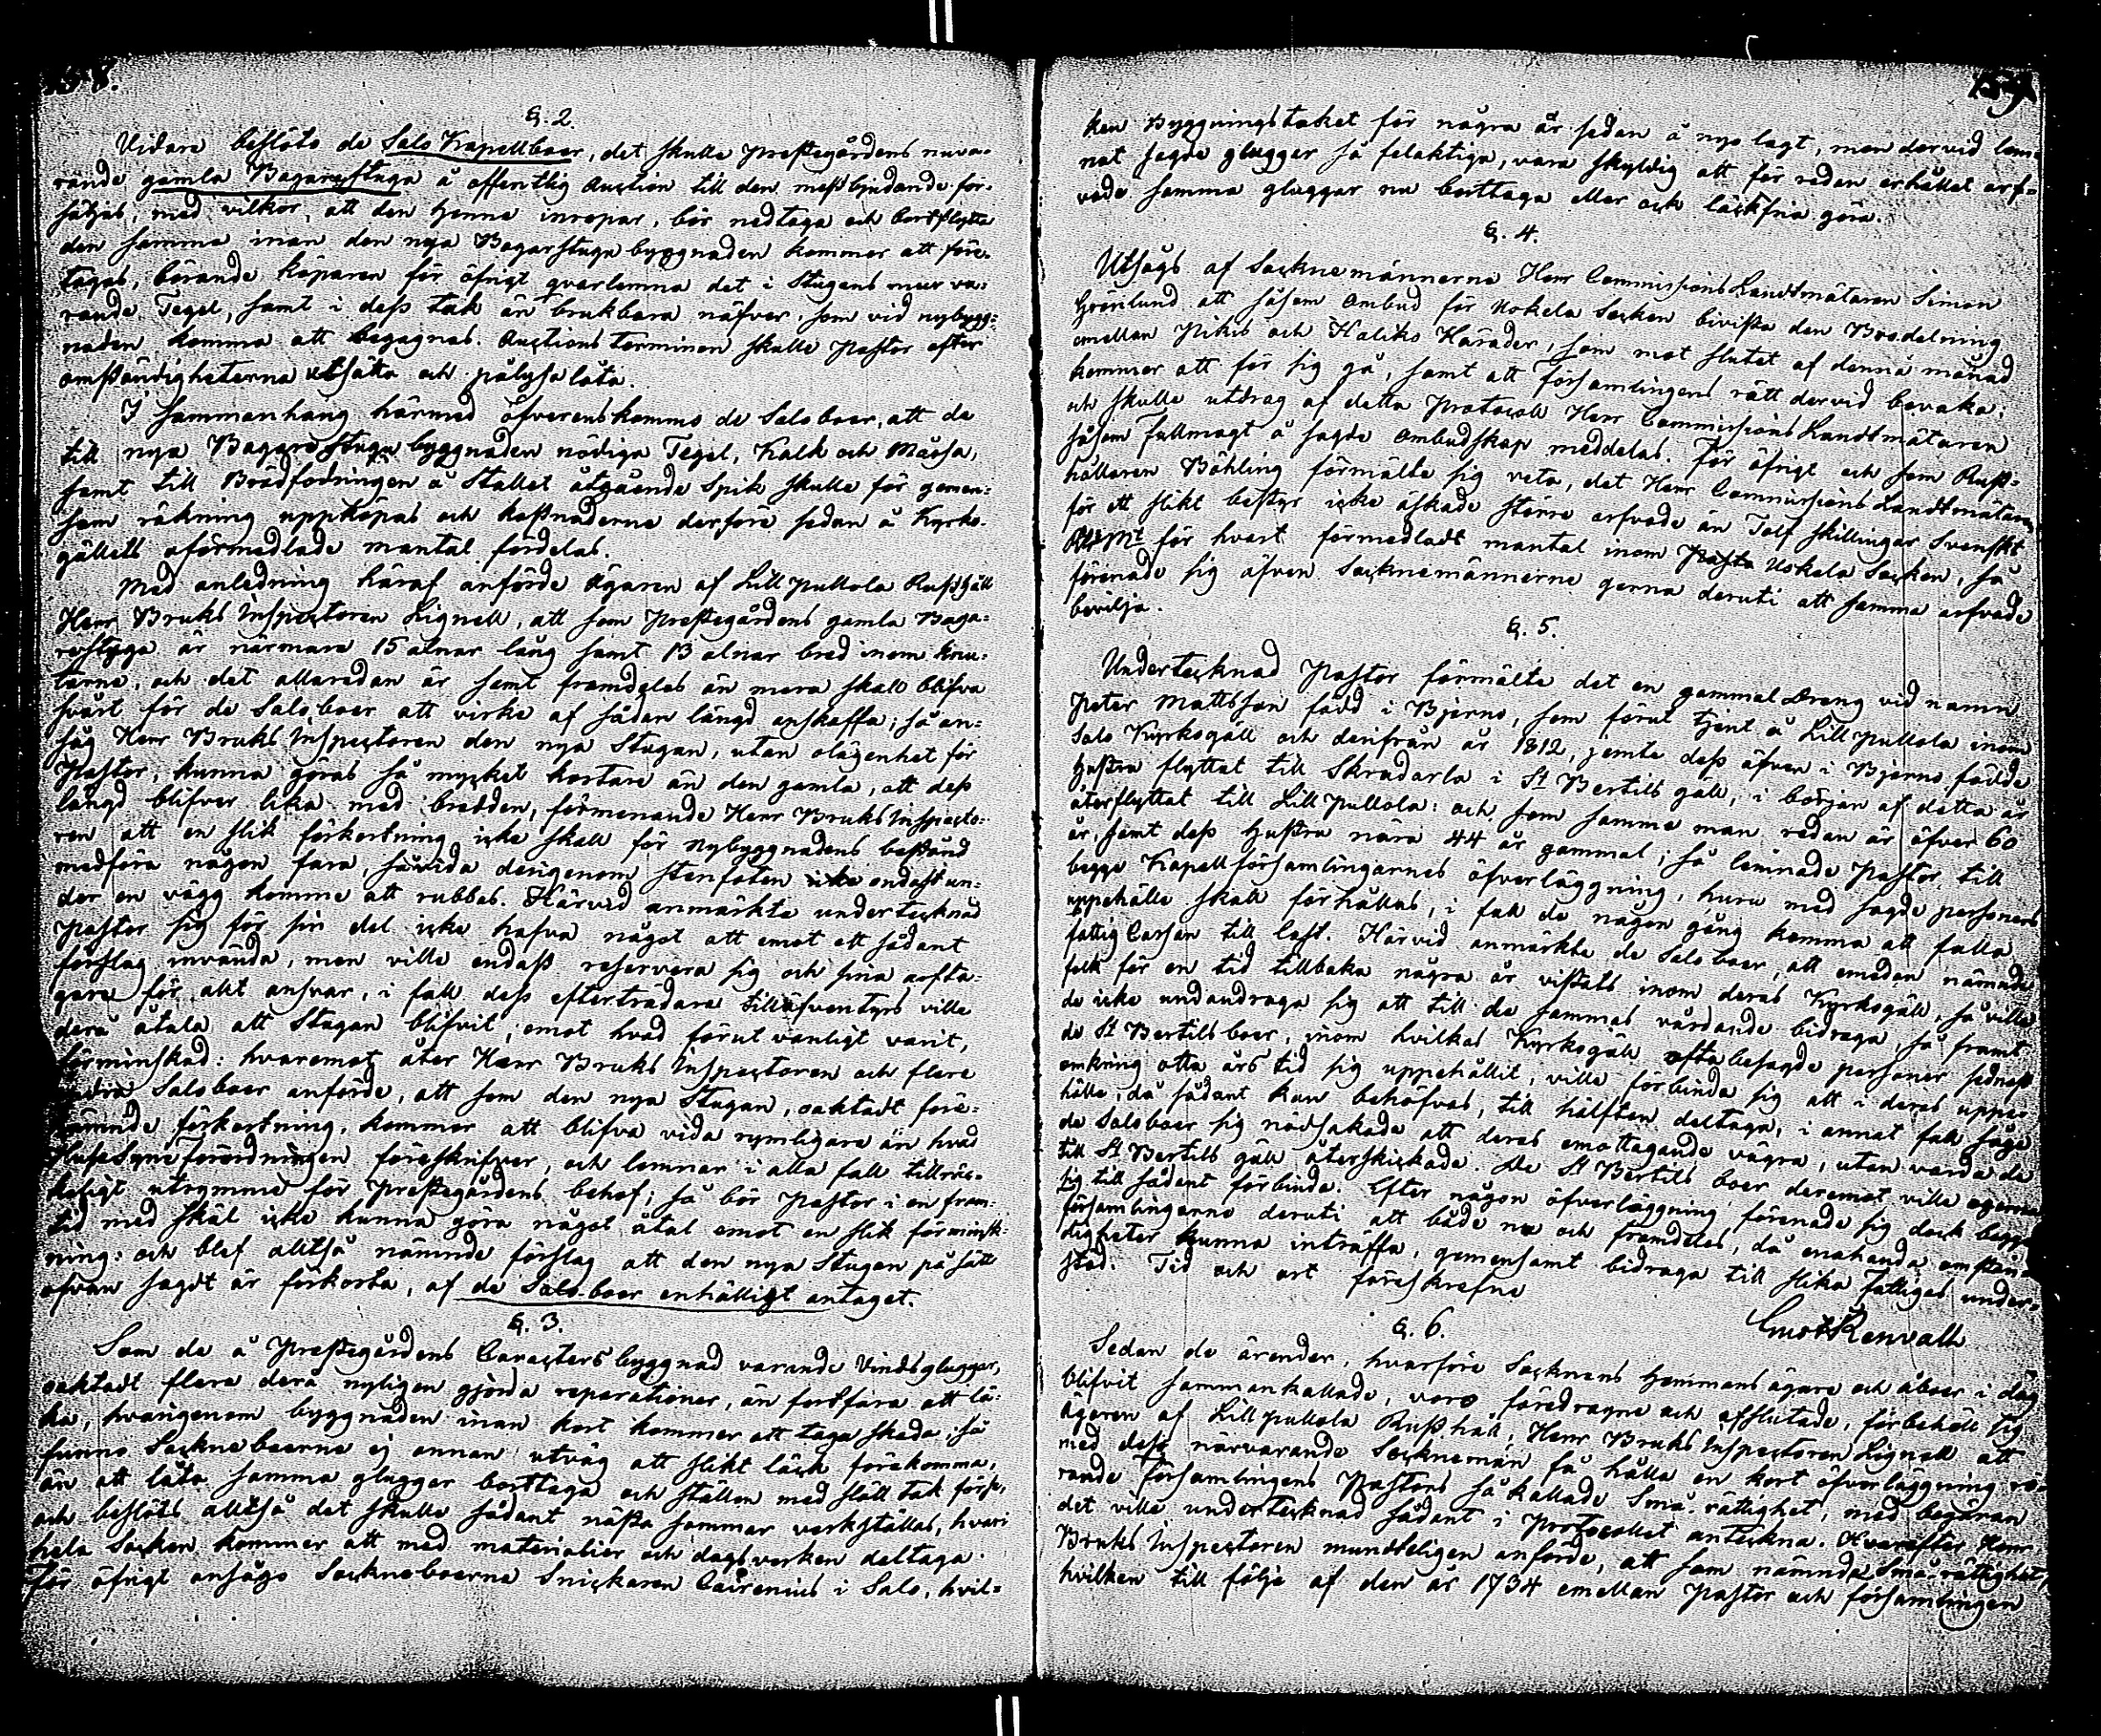 158.
§. 2.
Vidare beslöto de Salo Kapellboer, det skulle Prestegårdens nuva-
rande gamla Bagarestuga å offentlig Auction till den mestbjudande för-
säljas, med vilkor, att den henne inropar, bör nedtaga och bortflytta
den samma inan den nya Bagarstuga byggnaden kommer att före-
tagas, börande köparen för öfrigt qvarlemna det i Stugans mur va-
rande Tegel, samt i dess tak än brukbara näfver, som vid nybygg-
naden komma att begagnas. Auctions terminen skulle Pastor efter
omständigheterna utsätta och pålysa låta.
I sammanhang härmed öfverenskommo de Saloboer, att de
till nya Bagarestuga byggnaden nödiga Tegel, Kalk och Måssa,
samt till Brädfodningen å Stallet åtgående Spik skulle för gemen-
sam räkning uppköpas och kostnaderne derföre sedan å Kyrko-
gällets oförmedlade mantal fördelas.
Med anledning häraf anförde Ägaren af Lill Pullola Rusthåll
Herr Bruks Inspectoren Lignell, att som Prestegårdens gamla Baga-
restuga är närmare 15 alnar lång samt 13 alnar bred inom knu-
tarne, och det allaredan är samt framdeles än mera skall blifva
svårt för de Saloboer att virke af sådan längd anskaffa; så an-
såg Herr Bruks Inspectoren den nya Stugan, utan olägenhet för
Pastor, kunna göras så mycket kortare än den gamla, att dess
längd blifver lika med bredden, förmenande Herr Bruks Inspecto-
ren att en slik förkortning icke skall för Nybyggnadens bestånd
medföra någon fara, såvida derigenom stenfoten endast un-
der en vägg komme att rubbas. Härvid anmärkte undertecknad
Pastor sig för sin del icke hafva något att emot ett sådant
förslag invända, men ville endast reservera sig och sina arfta-
gare för allt ansvar, i fall dess efterträdare tilläfventyrs ville
derå åtala att Stugan blifvit, emot hvad förut vanligt varit,
förminskad: hvaremot åter Herr Bruks Inspectoren och flere
andra Saloboer anförde, att som den nya Stugan, oaktadt före-
nämnde förkortning, kommer att blifva vida rymligare än hvad
Husesyns Förordningen föreskrifver, och lemnar i alla fall tillräc-
keligt utrymme för Prestegårdens behof; så bör Pastor i en fram-
tid med skäl icke kunna göra något åtal emot en slik förminsk-
ning: och blef alltså nämnde förslag att den nya Stugan på sätt
ofvan sagdt är förkorta, af de Saloboer enhälligt antaget.
§. 3.
Som de å Prestegårdens Caractersbyggnad varande Vindsgluggar,
oaktadt flera derå nyligen gjorda reparationer, än fortfara att lä-
ka, hvarigenom byggnaden inan kort kommer att taga skada; så
funno Sockneboerne ej annan utväg att slikt läck förekomma,
än att låta samma gluggar borttaga och ställen med slätt tak förse,
och beslöts alltså det skulle sådant nästa sommar verkställas, hvari
hela Socken kommer att med materialier och dagsverken deltaga.
För öfrigt ansågo Socknеboerne Snickaren Cairenius i Salo, hvil-
159
ken Byggningstaket för några år sedan å nyo lagt, men dervid lem-
nat sagde gluggar så felaktiga, vara skyldig att för redan erhållet arf-
vode samma gluggar nu borttaga eller ock läckfria göra.
§. 4.
Utsågs af Sockne männerne Herr Commissions Landtmätaren Simon
Grönlund att såsom Ombud för Uskela Socken bivista den Brodelning
emellan Pikis och Haliko Härader, som mot slutet af denna månad
kommer att för sig gå, samt att Församlingens rätt dervid bevaka;
och skulle utdrag af detta Protocoll Herr Commissions Landtmätaren
såsom fullmagt å sagde Ombudskap meddelas. För öfrigt och som Rust-
hållaren Böhling förmälte sig veta, det Herr Commissions Landtmätaren
för ett slikt bestyr icke äskade större arfvode än Tolf skillingar Svenskt
R:Mt för hvart förmedladt mantal inom Uskela Socken, så
förenade sig äfven Socknemännerne gerna deruti att samma arfvode
bevilja.
§. 5.
Undertecknad Pastor förmälte det en gammal Dreng vid namn
Peter Mattsson född i Bjerno, som förut tjent å Lill Pullola inom
Salo Kyrkogäll och derifrån år 1812, jemte dess äfven i Bjerno födde
hustru flyttat till Skradarla i St Bertils gäll, i början af detta år
återflyttat till Lill Pullola: och som samma man redan är öfver 60
år, samt dess hustru nära 44 år gammal; så lemnade Pastor till
begge Kapellförsamlingarnes öfverläggning, huru med sagde personers
uppehälle skall förhållas, i fall de någon gång komma att falla
fattig Cassan till last. Härvid anmärkte de Saloboer, att emedan nämnde
folk för en tid tillbaka några år vistats inom deras Kyrkogäll, så ville
de icke undandraga sig att till de sammas vårdande bidraga, så framt
de St Bertilsboer, inom hvilkas Kyrkogäll ofta besagde personer sednast
omkring otta års tid sig uppehållit, ville förbinda sig att i deras uppe-
hälle, då sådant kan behöfvas, till hälften deltaga, i annat fall sågo
de Saloboer sig nödsakade att deras emottagande vägra, utan varda de
till St Bertils gäll återskickade. De St Bertils boer deremot ville ogerna
sig till sådant förbinda. Efter någon öfverläggning förenade sig dock begge
församlingarne deruti att både nu och framdeles, då enahanda omstän-
digheter kunna inträffa, gemensamt bidraga till slika fattigas under-
stöd. Tid och ort föreskrefne
Gust Renvall
§. 6.
Sedan de ärender, hvarföre Socknens Hemmansägare och åboer i dag
blifvit sammankallade, voro föredragne och afslutade, förbehöll sig
Ägaren af Lill Pullola Rusthåll, Herr Bruks Inspectoren Lignell att
med dess närvarande Socknemän få hålla en kort öfverläggning rö-
rande Församlingens Pastors så kallade Små-rättighet, med begäran
det ville undertecknad sådant i Protocollet anteckna. Hvarefter Herr
Bruks Inspectoren mundteligen anförde, att som nämnda Små-rättighet,
hvilken till följe af den år 1734 emellan Pastor och församlingen